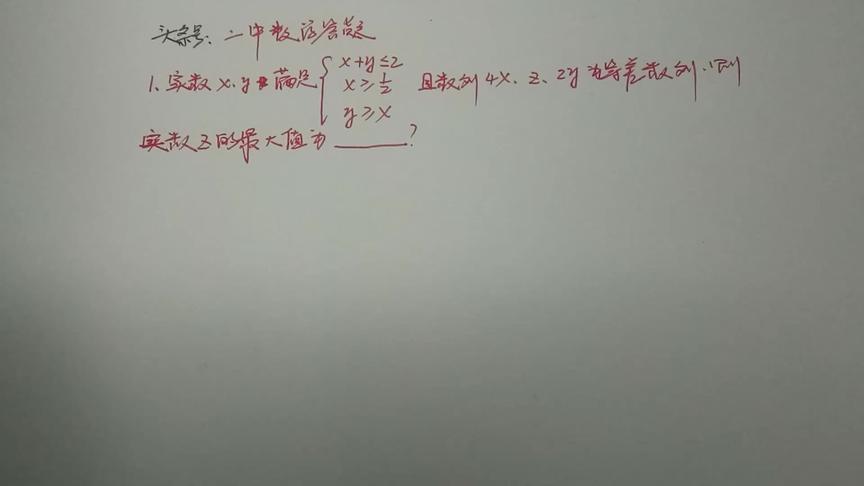 头条号:二中数学答疑
1、实数 x、y 满足 { x+y≤2 x≥1/2 y≥x 且数列 4x、z、2y 为等差数列.则
实数 z 的最大值为 ______?